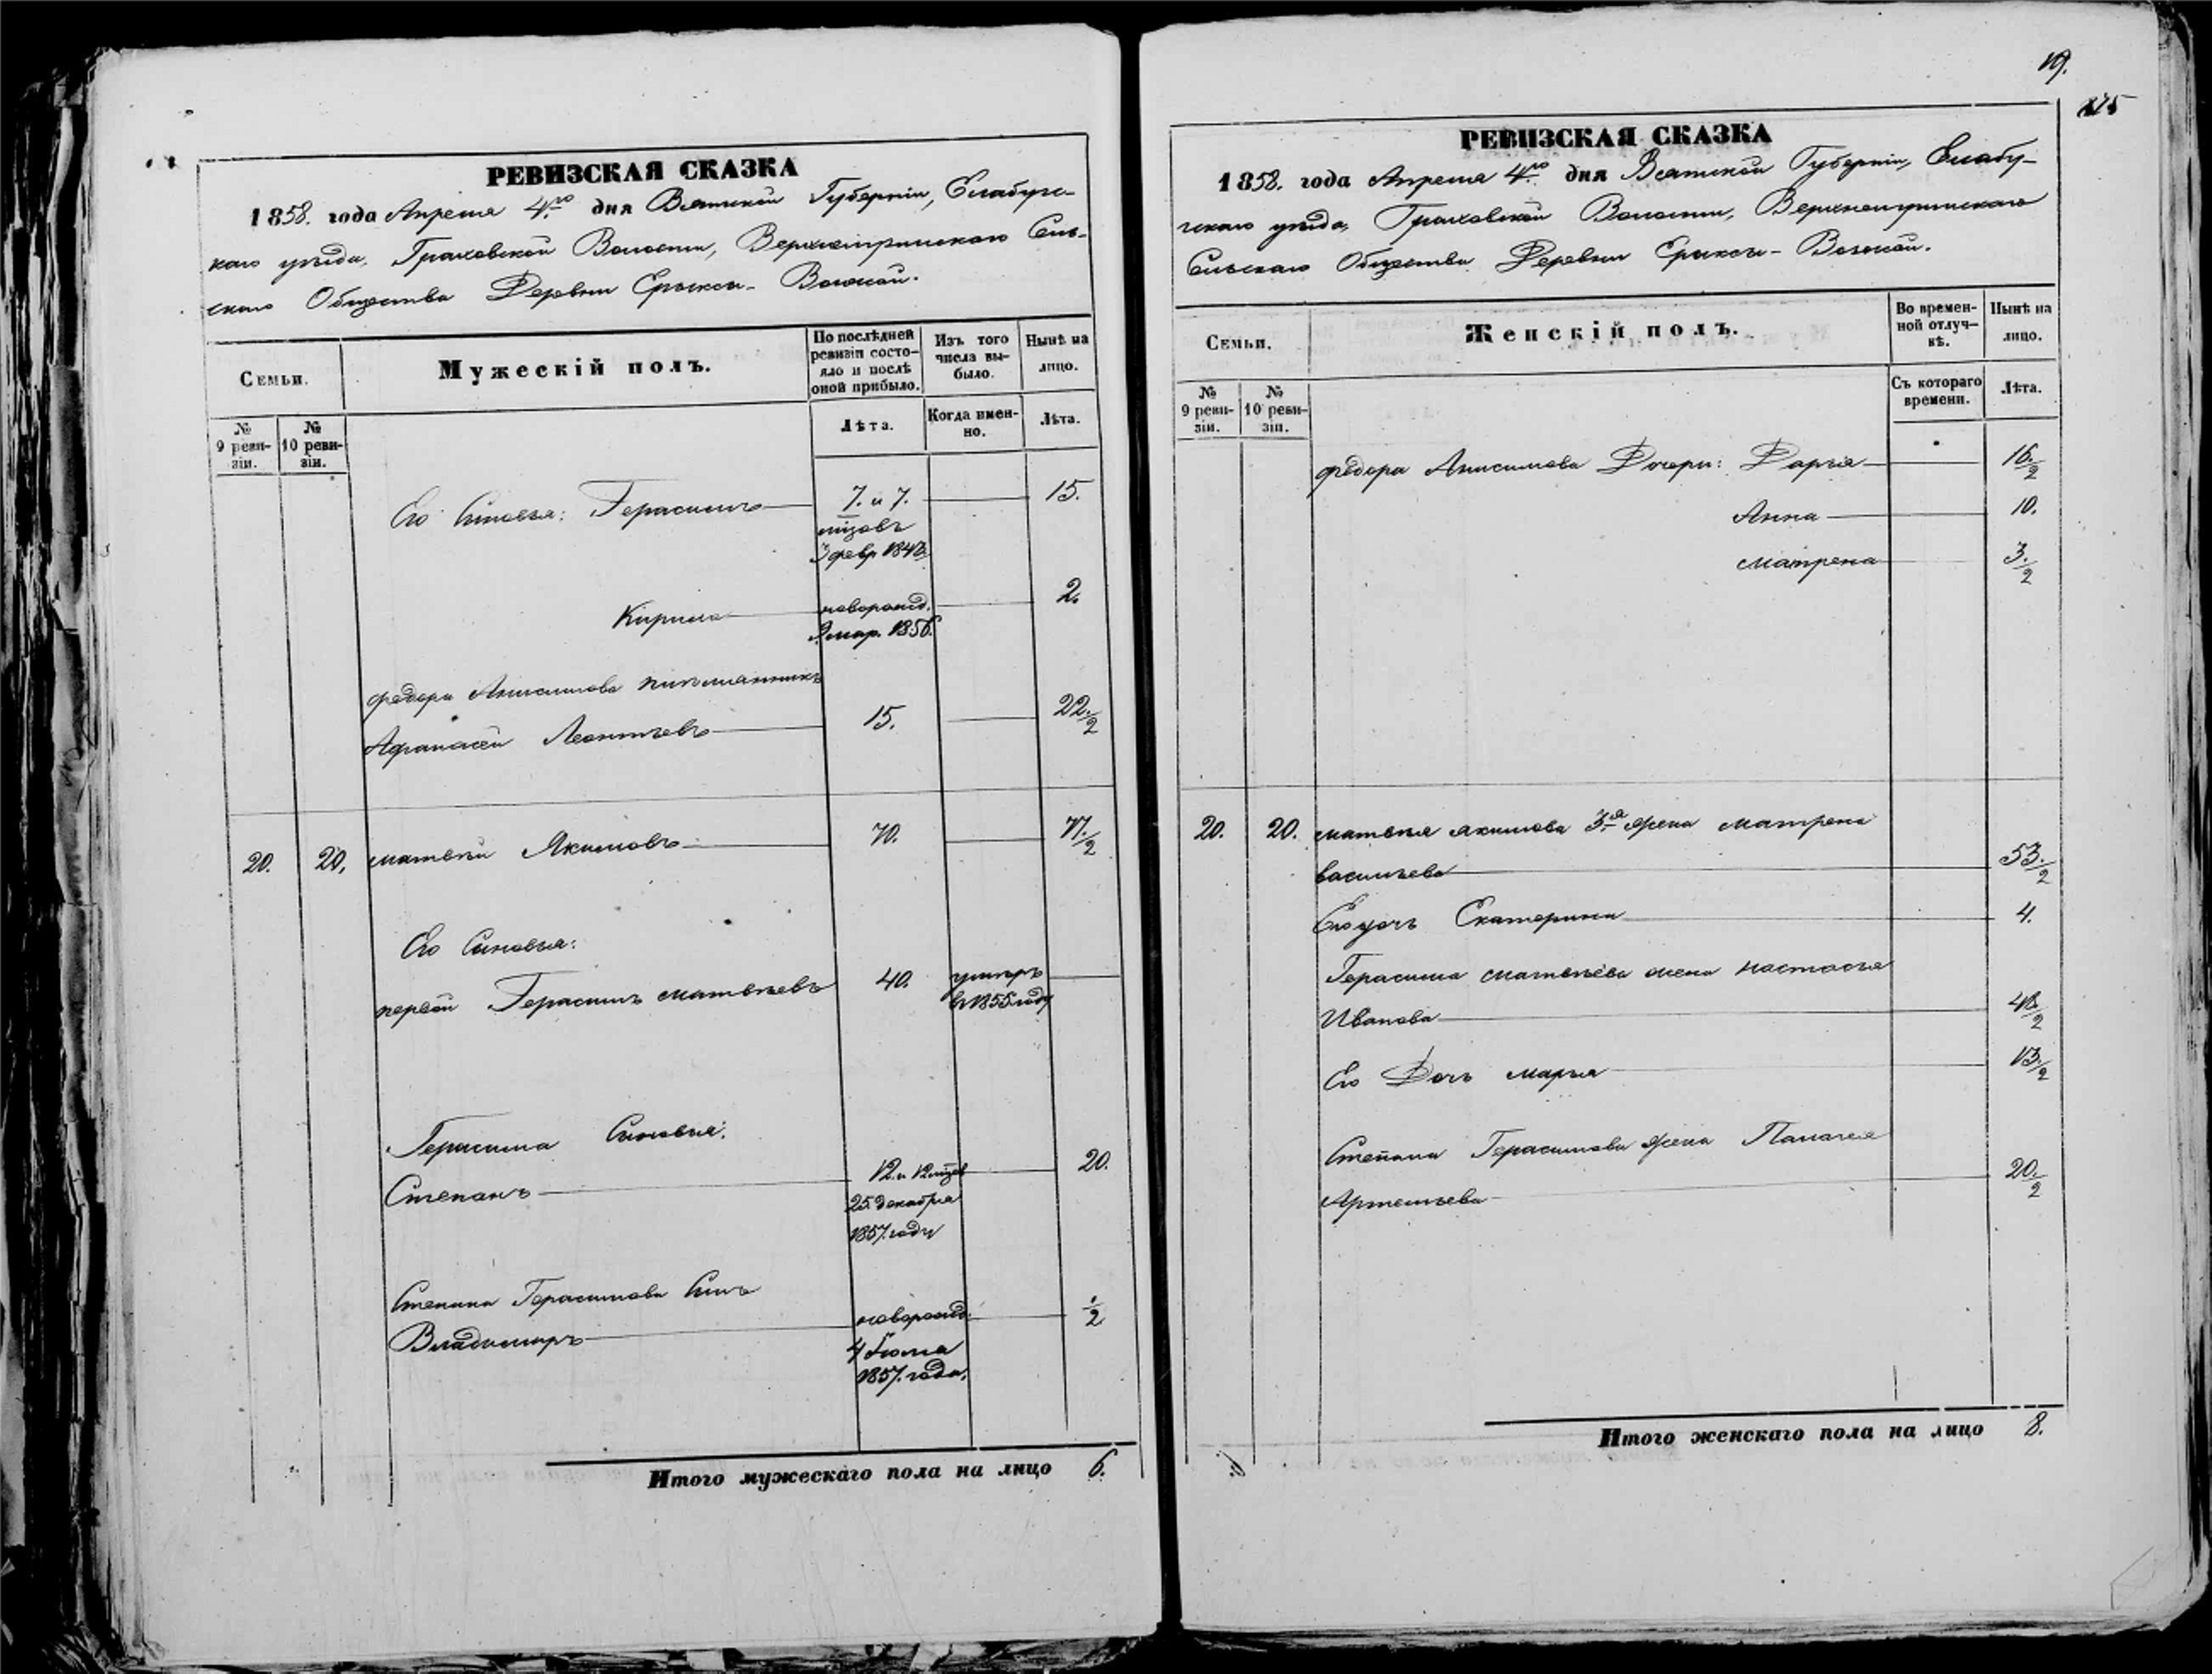 РЕВИЗСКАЯ СКАЗКА
1858. года Апреля 4го дня Вятской Губернiи, Елабугс-
каго уѣзда, Граховской Волости, Верхнеигринскаго Сель-
скаго Общества Деревни Ерыксы-Вожжай.
Семьи.
Мужескій полъ.
По послѣдней ревизіи состояло и послѣ оной прибыло.
Изъ того числа выбыло.
Нынѣ на лицо.
№ 9 ревизіи.
№ 10 ревизіи.
Лѣта.
Когда именно.
Лѣта.
Его Сыновья: Герасимъ 7. и 7. 15.
мцзовъ
3 февр 1843
Кирило новорожд. 2.
9 мар. 1856.
Федора Анисимова племянникъ
Афанасей Леонтьевъ 15. 22.½
20. 20. Матвѣй Якимовъ 70. 77.½
Его Сыновья:
первой Герасимъ Матвѣевъ 40. умеръ
в 1855 году
Герасима Сыновья:
Степанъ 12. и 12 мцзев 20.
25. декабря
1857. году
Степана Герасимова Сынъ
Владимиръ новорожд. ½
4 Iюля
1857. года.
Итого мужескаго пола на лицо 6.
19.
275
РЕВИЗСКАЯ СКАЗКА
1858. года Апреля 4го дня Вятской Губернiи, Елабу-
гскаго уѣзда, Граховской Волости, Верхнеигринскаго
Сельскаго Общества Деревни Ерыксы-Вожжай.
Семьи.
Женскій полъ.
Во временной отлучкѣ.
Нынѣ на лицо.
№ 9 ревизіи.
№ 10 ревизіи.
Съ котораго времени.
Лѣта.
Федора Анисимова Дочери: Дарья 16.½
Анна 10.
Матрена 3.½
20. 20. Матвѣя Якимова 3я жена Матрена
Васильева 53.½
Его дочь Екатерина 4.
Герасима Матвѣева жена Настасья
Иванова 48.½
Его Дочь Марья 13.½
Степана Герасимова жена Палагея
Артемьева 20.½
Итого женскаго пола на лицо 8.